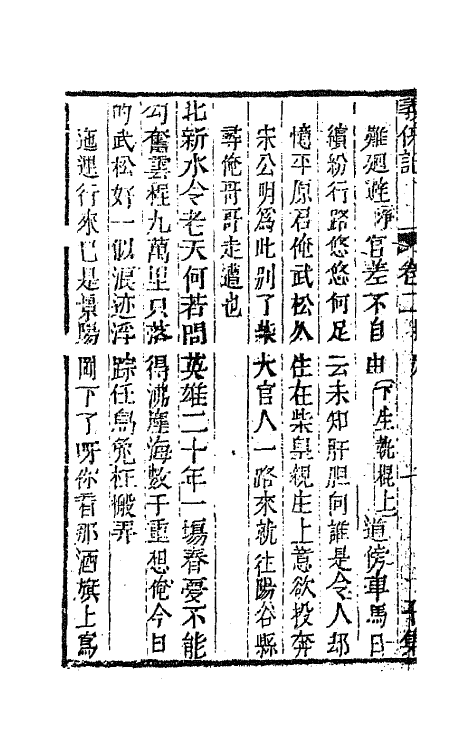 義俠記 卷二 子集
難廻避 官差不自由 下生執棍上 道傍車馬日
繽紛行路悠悠何足云未知肝胆向誰是令人却
憶平原君俺武松久住在柴皇親庄上意欲投奔
宋公明爲此别了柴大官人一路來就往陽谷縣
尋俺哥哥走遭也
北新水令老天何若問英雄二十年一塲春憂不能
勾奮雲程九萬里只落得沸塵海數千重想俺今日
的武松好一似浪迹浮踪任烏兔枉搬弄
迤逦行來已是景陽岡下了呀你看那酒旗上寫